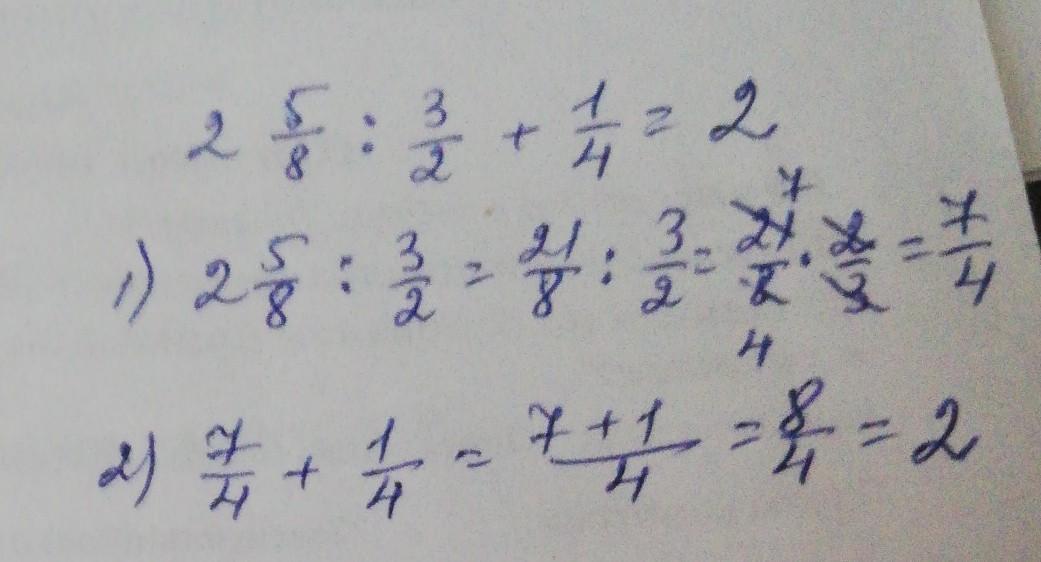 2 5/8 : 3/2 + 1/4 = 2
1) 2 5/8 : 3/2 = 21/8 : 3/2 = 21/8 · 2/3 = 7/4
7
4
2) 7/4 + 1/4 = 7+1/4 = 8/4 = 2